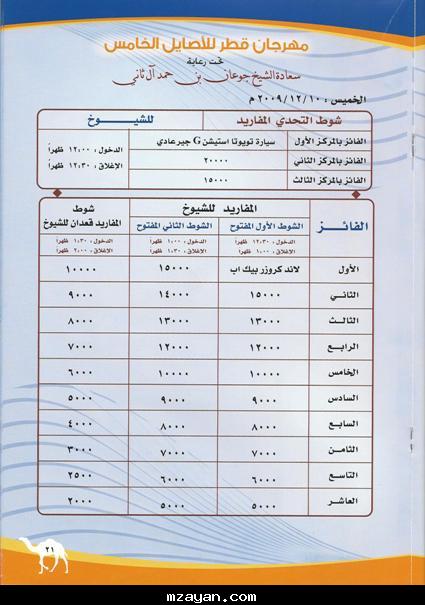 مهرجان قطر للأصايل الخامس
تحت رعاية
سعادة الشيخ جوعان بن حمد آل ثاني
الخميس : ٢٠٠٩/١٢/١٠ م
شوط التحدي المفاريد للشيــوخ
الفائز بالمركز الأول سيارة تويوتا استيشن G جيرعادي الدخول : ١٢:٠٠ ظهراً
الفائز بالمركز الثاني ٢٠٠٠٠ الإغلاق : ١٢:٣٠ ظهراً
الفائز بالمركز الثالث ١٥٠٠٠
الفائـز المفاريد للشيوخ شوط
المفاريد قعدان للشيوخ
الشوط الأول المفتوح الشوط الثاني المفتوح
الدخول : ١٢:٣٠ ظهراً الدخول : ١:٠٠ ظهراً الدخول : ١:٣٠ ظهراً
الإغلاق : ١:٠٠ ظهراً الإغلاق : ١:٣٠ ظهراً الإغلاق : ٢:٠٠ ظهراً
الأول لاند كروزر بيك اب ١٥٠٠٠ ١٠٠٠٠
الثاني ١٥٠٠٠ ١٤٠٠٠ ٩٠٠٠
الثالث ١٣٠٠٠ ١٣٠٠٠ ٨٠٠٠
الرابع ١٢٠٠٠ ١٢٠٠٠ ٧٠٠٠
الخامس ١٠٠٠٠ ١٠٠٠٠ ٦٠٠٠
السادس ٩٠٠٠ ٩٠٠٠ ٥٠٠٠
السابع ٨٠٠٠ ٨٠٠٠ ٤٠٠٠
الثامن ٧٠٠٠ ٧٠٠٠ ٣٠٠٠
التاسع ٦٠٠٠ ٦٠٠٠ ٢٥٠٠
العاشر ٥٠٠٠ ٥٠٠٠ ٢٠٠٠
٢١
mzayan.com